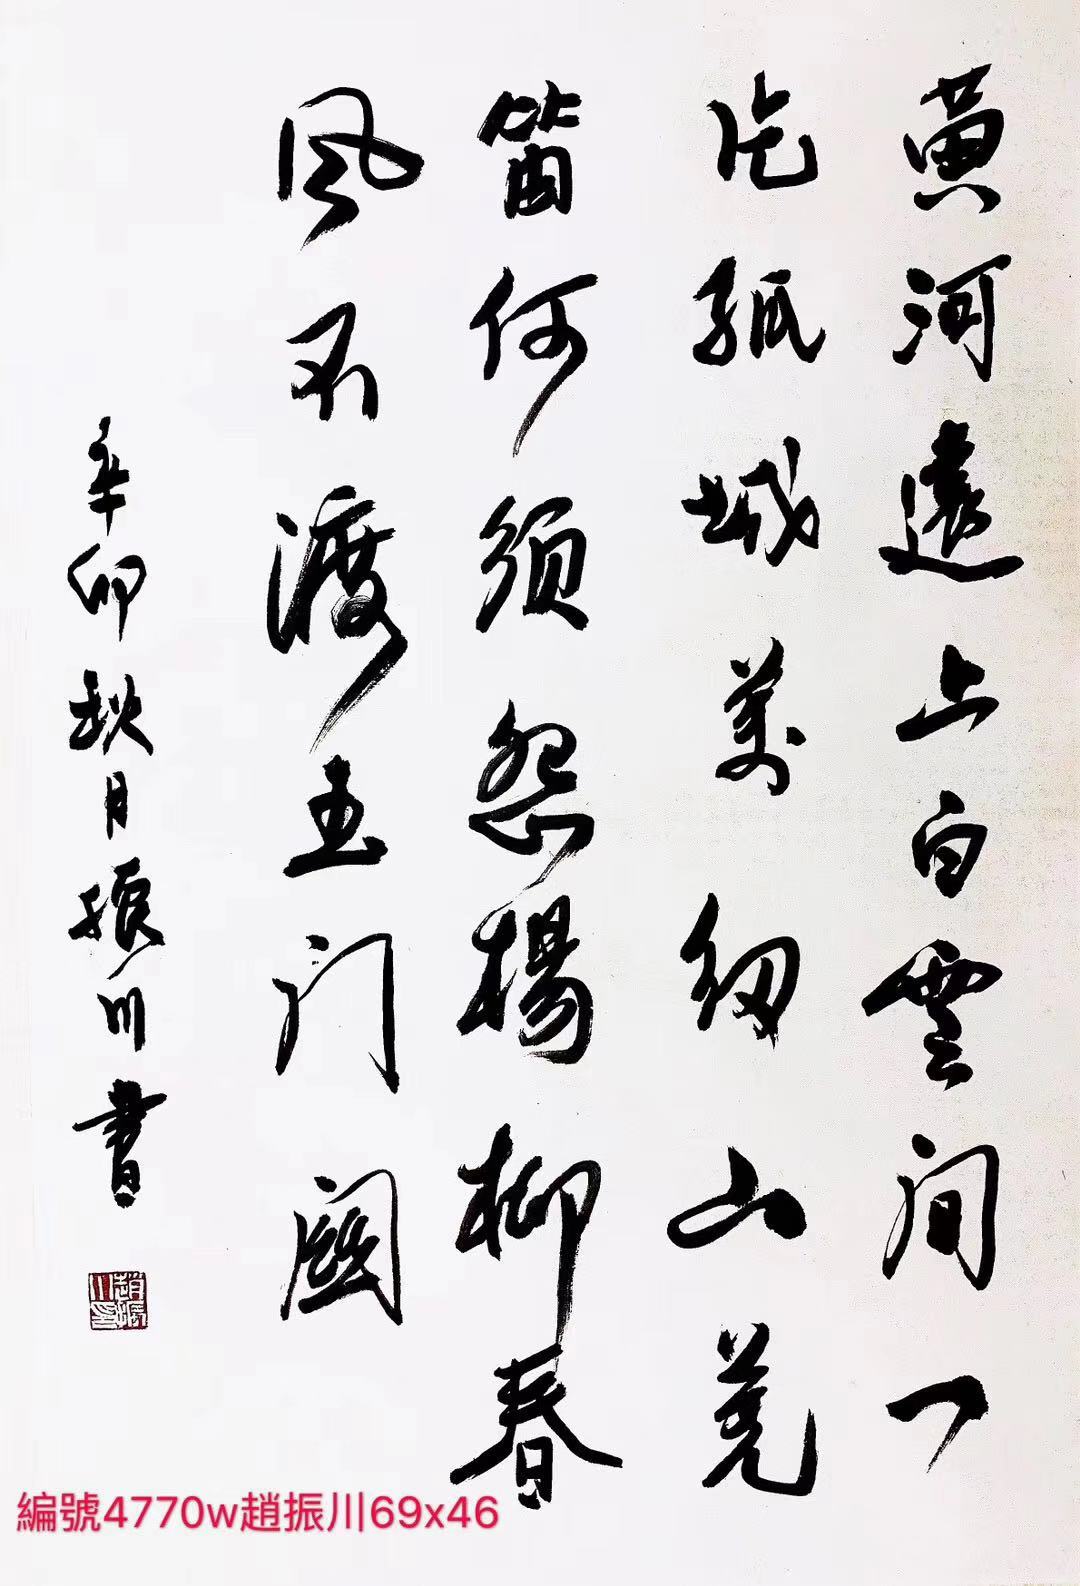 黄河遠上白雲间一
片孤城萬仞山羌
笛何须怨楊柳春
风不渡玉门關
辛卯秋月振川書
趙振川印
編號4770w趙振川69x46